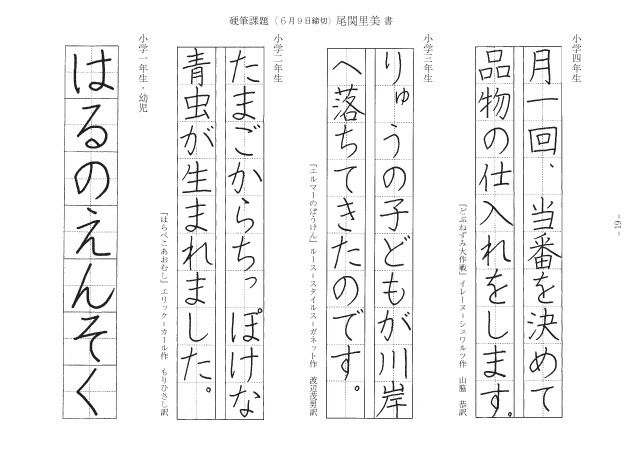 硬筆課題（６月９日締切）尾関里美 書
小学四年生
月一回、当番を決めて
品物の仕入れをします。
『どぶねずみ大作戦』イレーヌ＝シュワルツ作　山脇　恭訳
小学三年生
りゅうの子どもが川岸
へ落ちてきたのです。
『エルマーのぼうけん』ルース＝スタイルス＝ガネット作　渡辺茂男訳
小学二年生
たまごからちっぽけな
青虫が生まれました。
『はらぺこあおむし』エリック＝カール作　もりひさし訳
小学一年生・幼児
はるのえんそく
- 19 -